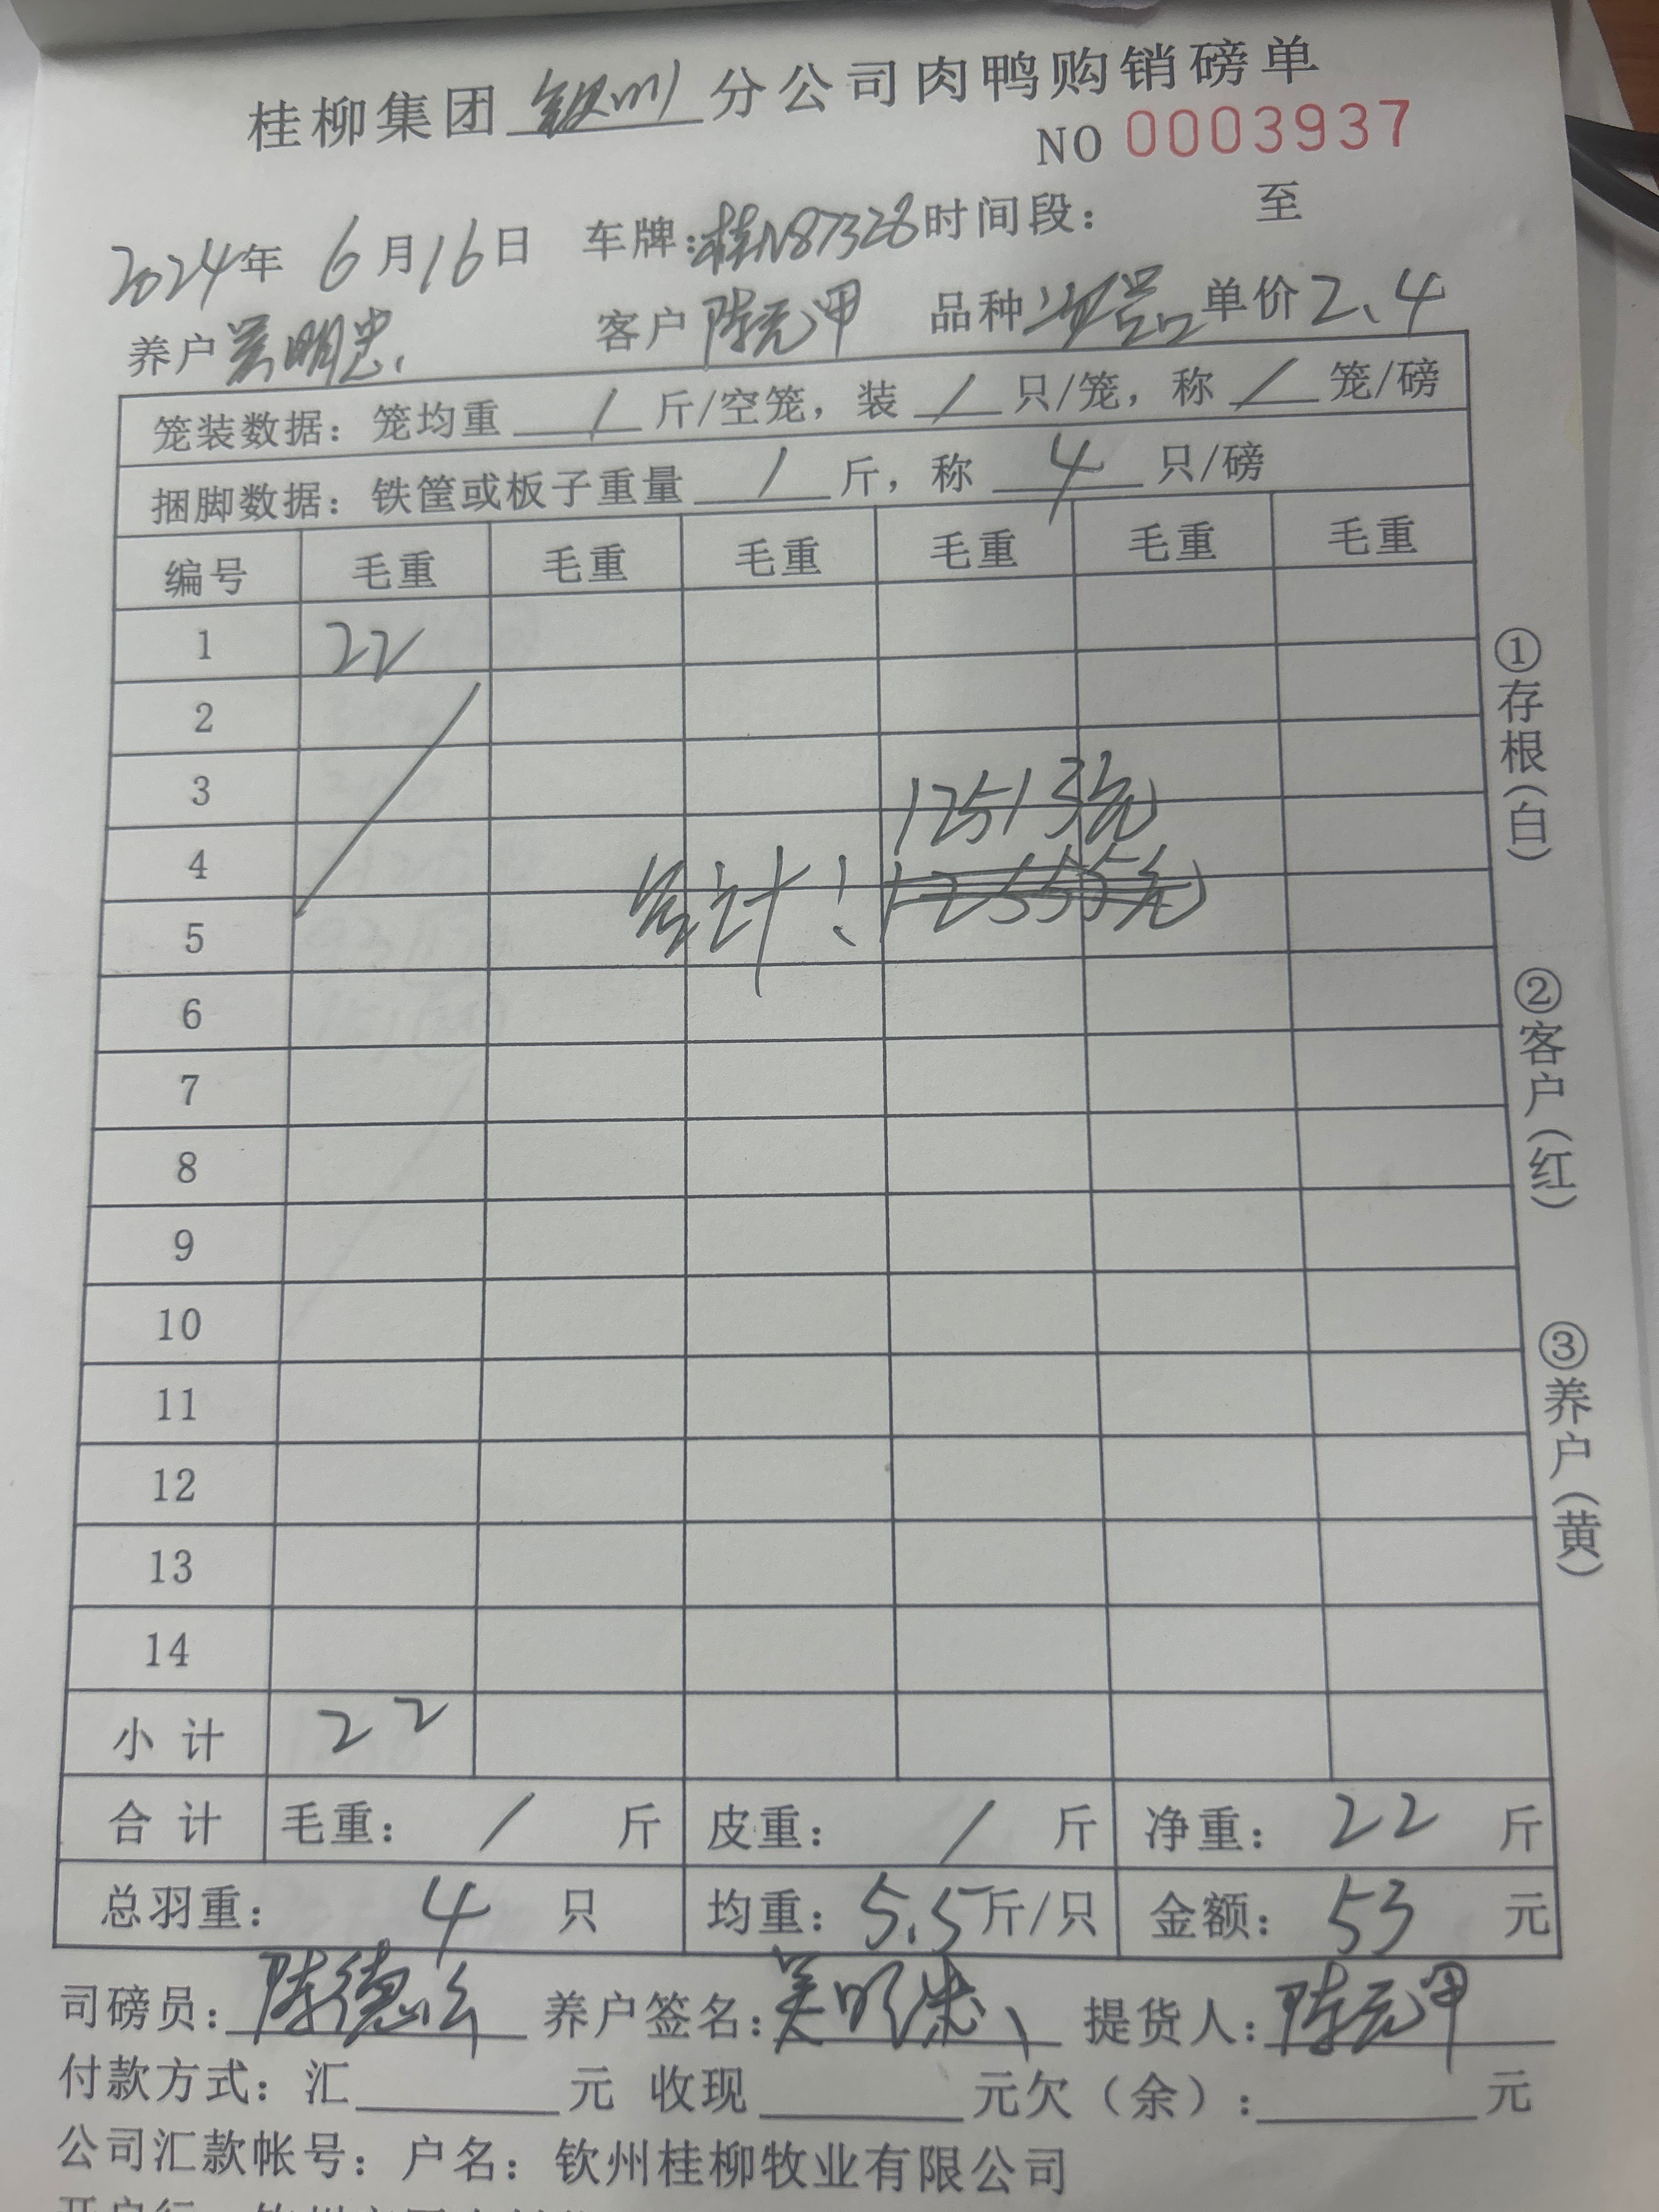 桂柳集团钦州分公司肉鸭购销磅单
NO 0003937
2024年 6月16日 车牌:桂N87328 时间段: 至
养户吴明忠 客户陈元甲 品种次品 单价2.4
笼装数据: 笼均重 / 斤/空笼, 装 / 只/笼, 称 / 笼/磅
捆脚数据: 铁筐或板子重量 / 斤, 称 4 只/磅
编号 毛重 毛重 毛重 毛重 毛重 毛重
1 22
2
3
12513元
4
合计: 12555元
5
6
7
8
9
10
11
12
13
14
小 计 22
合 计 毛重: / 斤 皮重: / 斤 净重: 22 斤
总羽重: 4 只 均重: 5.5斤/只 金额: 53 元
司磅员: 陈德 养户签名: 吴明忠 提货人: 陈元甲
付款方式: 汇 元 收现 元欠(余): 元
公司汇款帐号: 户名: 钦州桂柳牧业有限公司
①存根(白) ②客户(红) ③养户(黄)